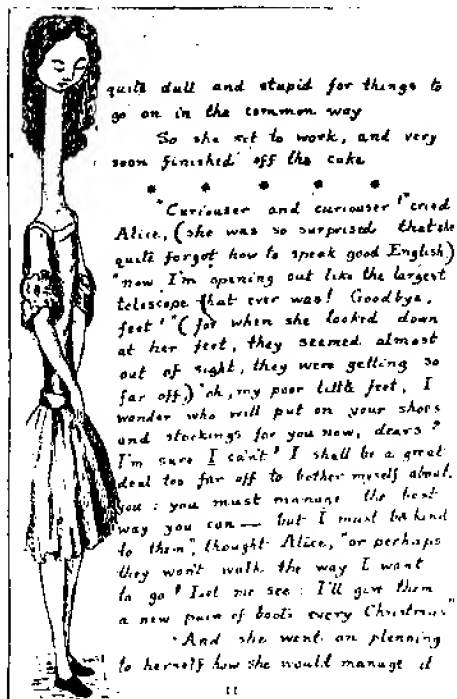 quite dull and stupid for things to
go on in the common way
So she set to work, and very
soon finished off the cake
* * * * *
"Curiouser and curiouser!" cried
Alice, (she was so surprised that she
quite forgot how to speak good English)
"now I'm opening out like the largest
telescope that ever was! Goodbye,
feet!" (for when she looked down
at her feet, they seemed almost
out of sight, they were getting so
far off,) "oh, my poor little feet, I
wonder who will put on your shoes
and stockings for you now, dears?
I'm sure I can't! I shall be a great
deal too far off to bother myself about
you: you must manage the best
way you can — but I must be kind
to them", thought Alice, "or perhaps
they won't walk the way I want
to go! Let me see: I'll give them
a new pair of boots every Christmas"
And she went on planning
to herself how she would manage it
11